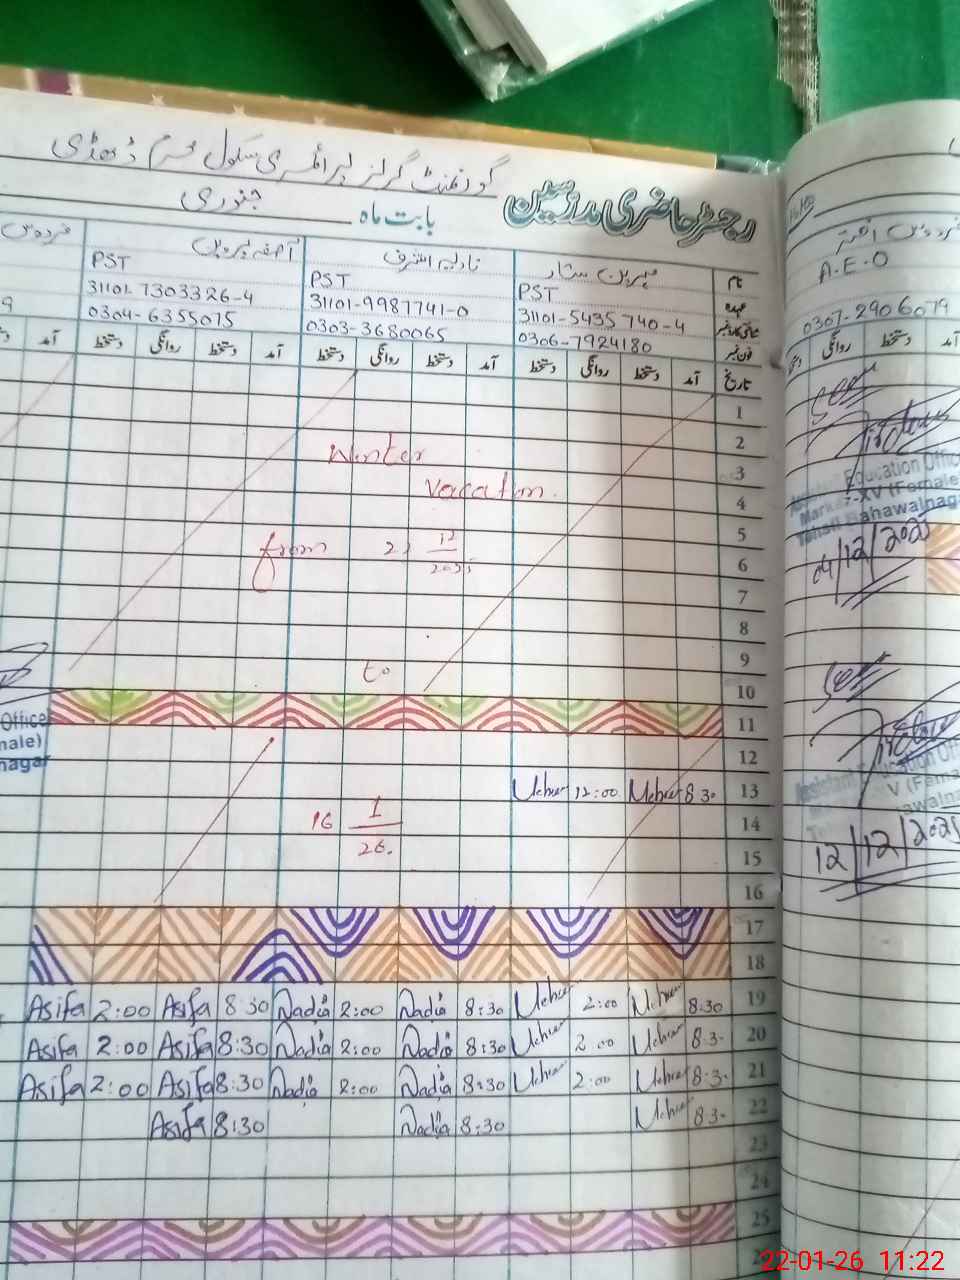 گورنمنٹ گرلز پرائمری سکول
رجسٹر حاضری مدرسین
بابت ماہ جنوری
نام مہرین ستار نادیہ اشرف آصفہ پروین
عہدہ PST PST PST
31101-5435740-4 31101-9987741-0 31101-7303326-4
فون نمبر 0306-7924180 0303-3680065 0304-6355075
تاریخ آمد دستخط روانگی دستخط آمد دستخط روانگی دستخط آمد دستخط روانگی دستخط آمد
1
2
Winter
3
vacation
4
5
from
12
6
7
8
9
to
10
11
12
13 8:30 12:00
16 1
14
26.
15
16
17
18
Asifa 2:00 Asifa 8:30 Nadia 2:00 Nadia 8:30 2:00 8:30 19
Asifa 2:00 Asifa 8:30 Nadia 2:00 Nadia 8:30 2:00 8:3- 20
Asifa 2:00 Asifa 8:30 Nadia 2:00 Nadia 8:30 2:00 8:3- 21
Asifa 8:30 Nadia 8:30 8:3- 22
23
24
25
Office
nale)
nagar
A.E.O
0307-2906079
روانگی دستخط
Education Office
(Female)
Bahawalnagar
04/12/2025
12/12/2025
22-01-26 11:22